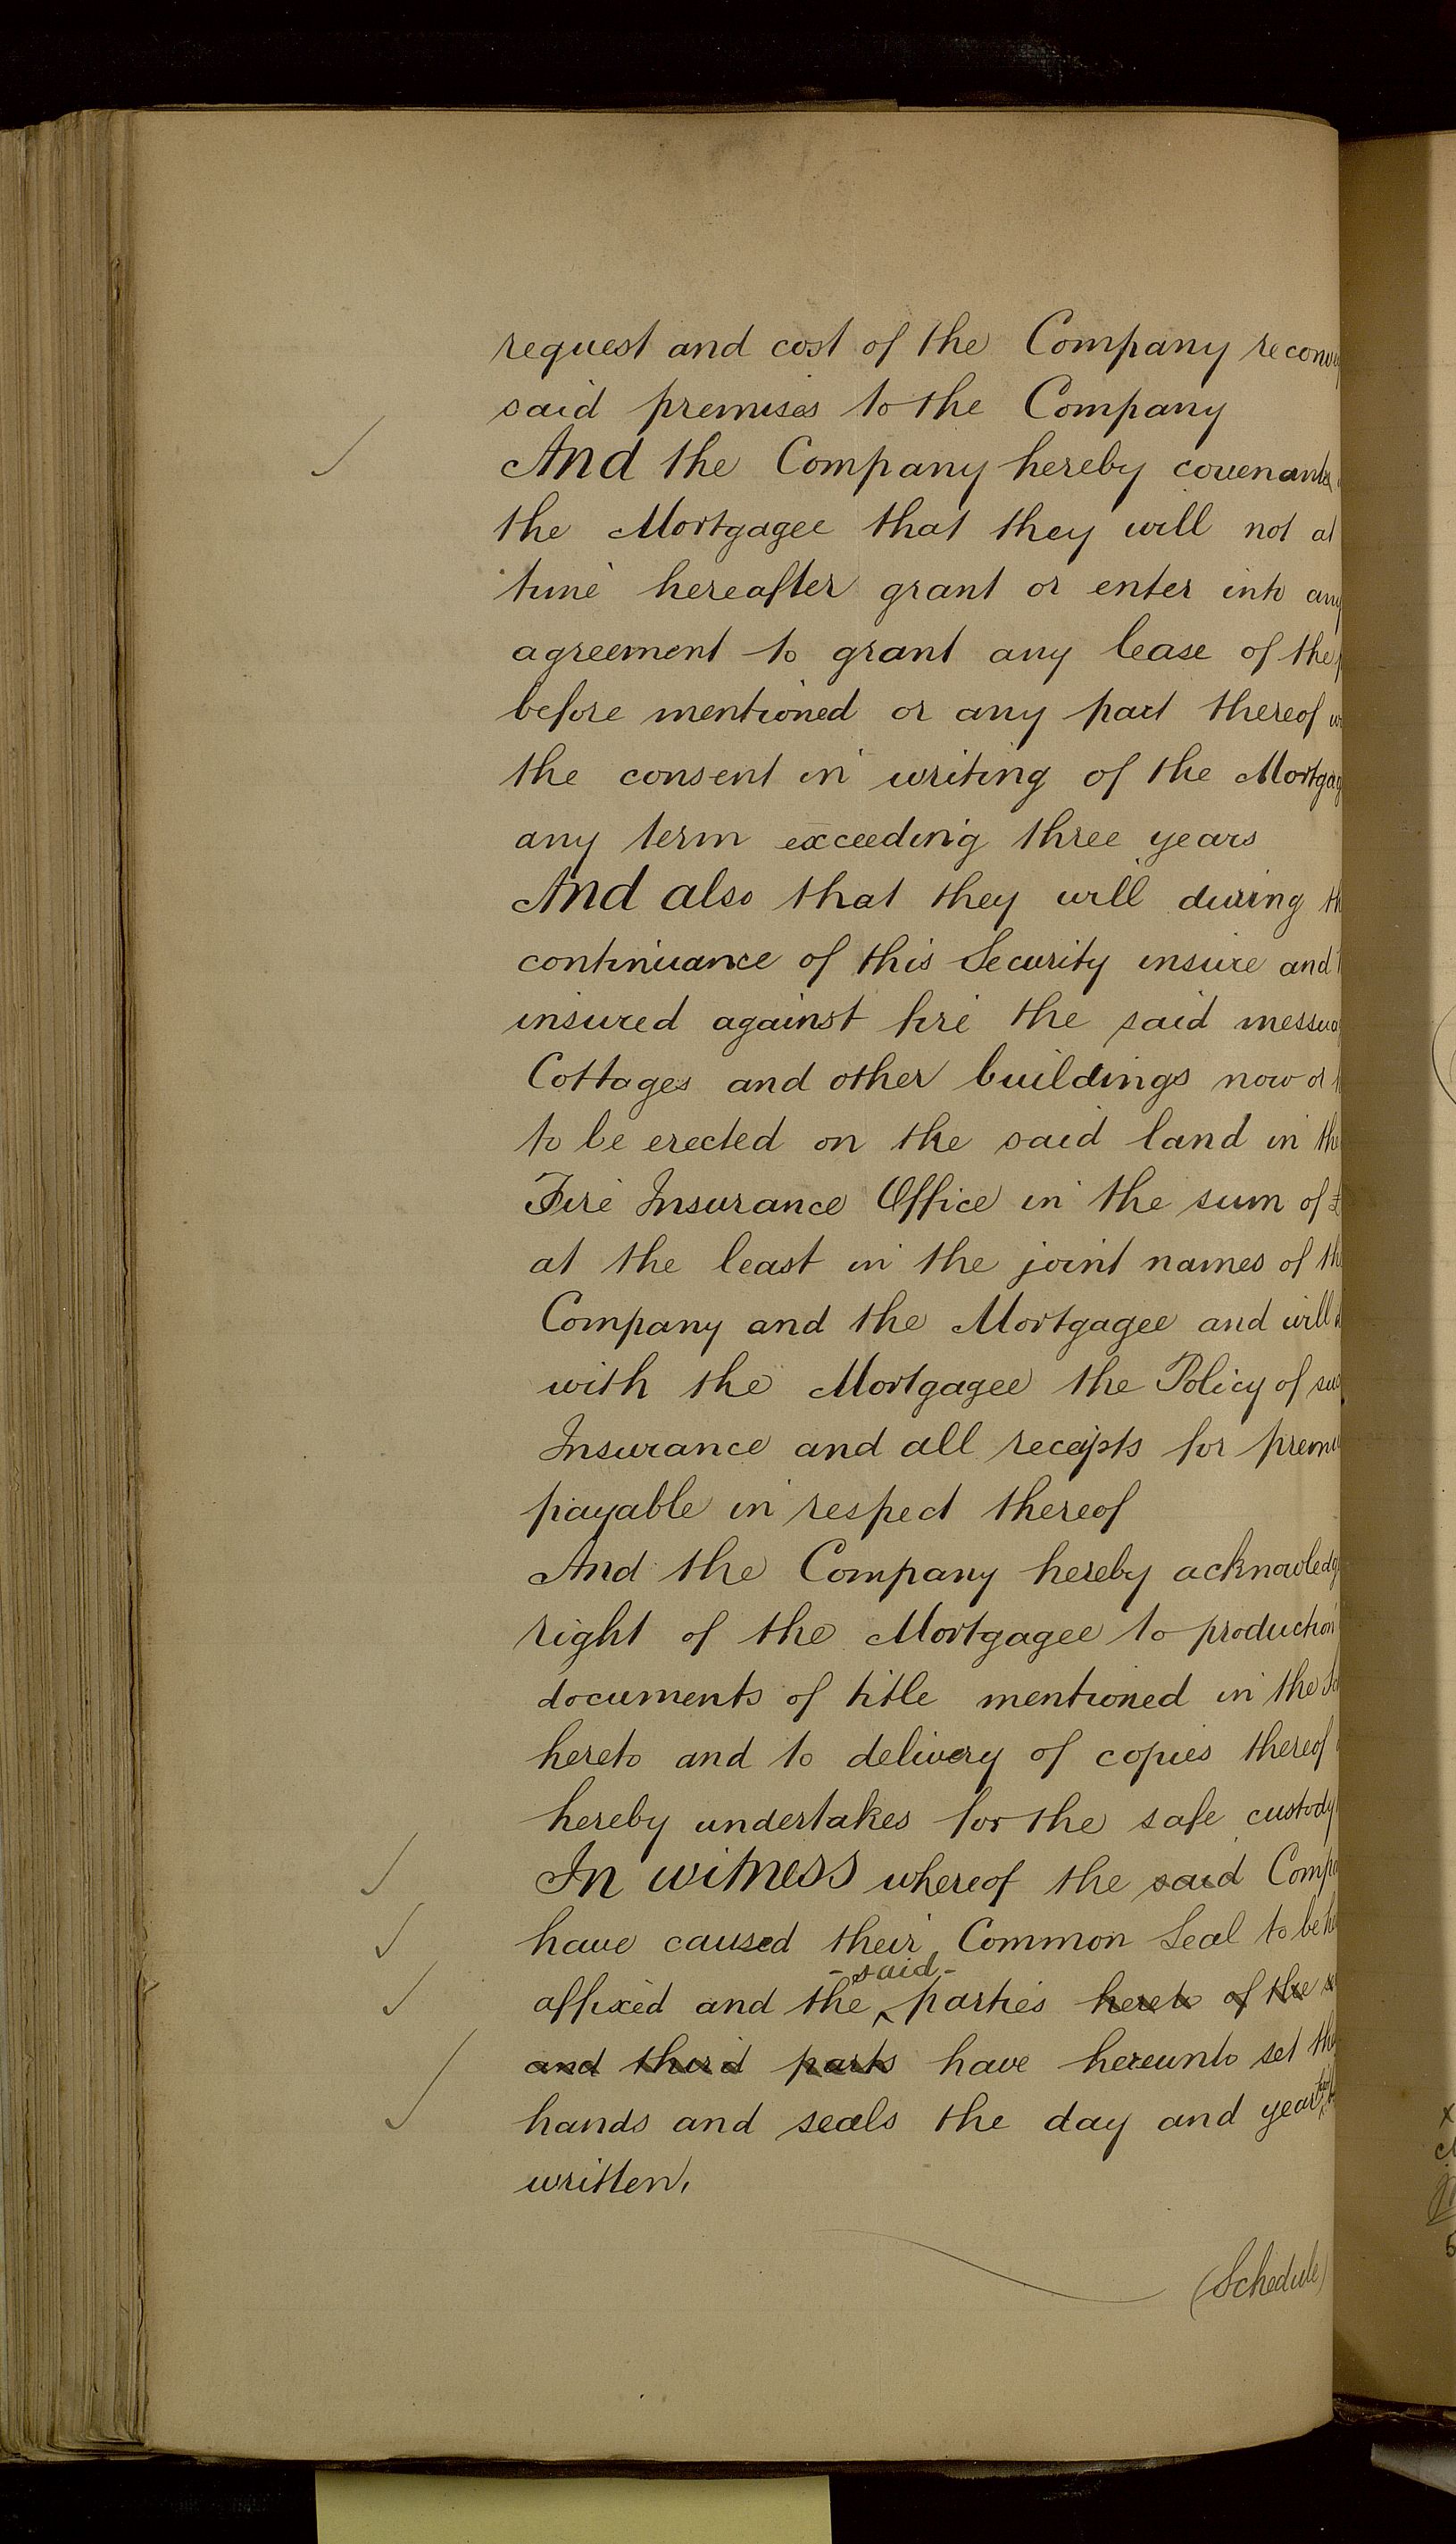 request and cost of the Company reconv
said premises to the Company
And the Company hereby covenants
the Mortgagee that they will not at
time hereafter grant or enter into any
agreement to grant any lease of the
before mentioned or any part thereof
the consent in writing of the Mortgag
any term exceeding three years
And also that they will during th
continuance of this Security insure and
insured against fire the said messua
Cottages and other buildings now or
to be erected on the said land in the
Fire Insurance Office in the sum of £
at the least in the joint names of the
Company and the Mortgagee and will
with the Mortgagee the Policy of suc
Insurance and all receipts for premiu
payable in respect thereof
And the Company hereby acknowledg
right of the Mortgagee to production
documents of title mentioned in the Sc
hereto and to delivery of copies thereof
hereby undertakes for the safe custody
In witness whereof the said Compa
have caused their Common Seal to be he
-said-
affixed and the parties hereto of the s
and third parts have hereunto set the
hands and seals the day and year first
written,
(Schedule)